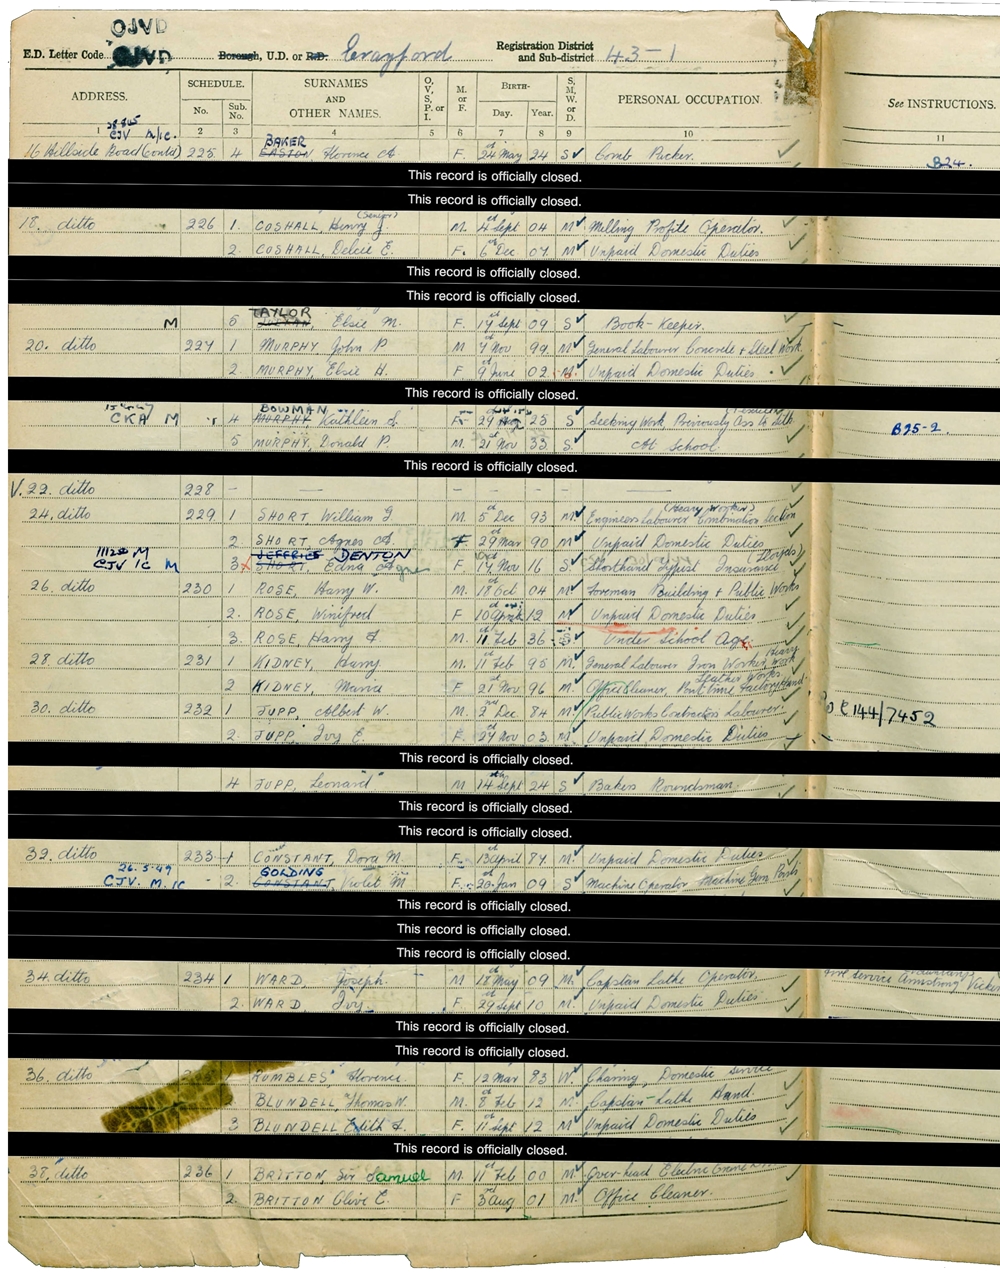 OJVD
E.D. Letter Code OJVD Borough, U.D. or R.D. Crayford Registration District and Sub-district 43-1
ADDRESS. SCHEDULE. No. Sub. No. SURNAMES AND OTHER NAMES. O, V, S, P, or I. M. or F. BIRTH- Day. Year. S, M, W, or D. PERSONAL OCCUPATION. See INSTRUCTIONS.
1 2 3 4 5 6 7 8 9 10 11
CJV A/C. BAKER
16 Hillside Road (contd) 225 4 EASTON Florence A. F. 24 May 24 S Comb Packer. B24.
This record is officially closed.
This record is officially closed.
(Senior)
18. ditto 226 1. COSHALL Henry J. M. 4 Sept 04 M Milling Profile Operator.
2. COSHALL, Delcie E. F. 6 Dec 07 M Unpaid Domestic Duties
This record is officially closed.
This record is officially closed.
TAYLOR
M 5 Elsie M. F. 14 Sept 09 S Book-Keeper.
20. ditto 227 1 MURPHY John P M 7 Nov 99. M General Labourer Concrete & Steel Work.
2. MURPHY, Elsie H. F 9 June 02. M. Unpaid Domestic Duties.
This record is officially closed.
BOWMAN
CKA M 4 MURPHY Kathleen S. F 29 Aug 25 S Seeking Work Previously Ass to B25-2.
5 MURPHY, Donald P. M. 21 Nov 33 S. At School
This record is officially closed.
V. 22. ditto 228 - — - - - - —
(Heavy Worker)
24, ditto 229 1 SHORT William J M. 5 Dec 93 M Engineers Labourer Combination Section
2. SHORT, Agnes A. F 29 Mar 90 M Unpaid Domestic Duties
M JEFFRIES DENTON (Lloyds)
CJV IC M 3 SHORT Edna Agnes F. 14 Nov 16 S Shorthand Typist Insurance
26. ditto 230 1 ROSE, Harry W. M. 18 Oct 04 M Foreman Building & Public Works
2. ROSE, Winifred F 10 April 12 M Unpaid Domestic Duties
3. ROSE, Harry F M. 11 Feb 36 S Under School Age.
28. ditto 231 1 KIDNEY, Harry M. 11 Feb 95 M General Labourer Iron Worker, Heavy Work
Leather Works.
2 KIDNEY, Maria F. 21 Nov 96 M. Office Cleaner, Part time Factory Hand
30. ditto 232 1 JUPP, Albert W. M. 2 Dec 84 M Public Works Contractors Labourer. 144/7452
2. JUPP, Ivy E. F. 27 Nov 03. M Unpaid Domestic Duties
This record is officially closed.
4 JUPP, Leonard M 14 Sept 24 S Bakers Roundsman.
This record is officially closed.
This record is officially closed.
32. ditto 233 1 CONSTANT, Dora M. F. 13 April 87 M. Unpaid Domestic Duties
26.5.49 GOLDING
CJV. M. IC 2. CONSTANT, Violet M F. 20 Jan 09 S Machine Operator Machine Gun Parts
This record is officially closed.
This record is officially closed.
This record is officially closed.
34. ditto 234 1 WARD, Joseph. M 18 May 09 M. Capstan Lathe Operator. Fire Service Armstrong Vickers
2. WARD Ivy. F. 29 Sept 10 M. Unpaid Domestic Duties
This record is officially closed.
This record is officially closed.
36. ditto RUMBLES Florence. F. 12 Mar 83 W. Charing, Domestic Service
BLUNDELL Thomas W. M. 8 Feb 12 M. Capstan Lathe Hand.
3 BLUNDELL Edith F. 11 Sept 12 M Unpaid Domestic Duties
This record is officially closed.
38, ditto 236 1 BRITTON, Sir Samuel M. 11 Feb 00 M Over-head Electric Crane
2. BRITTON Olive E. F 3 Aug 01 M. Office Cleaner.